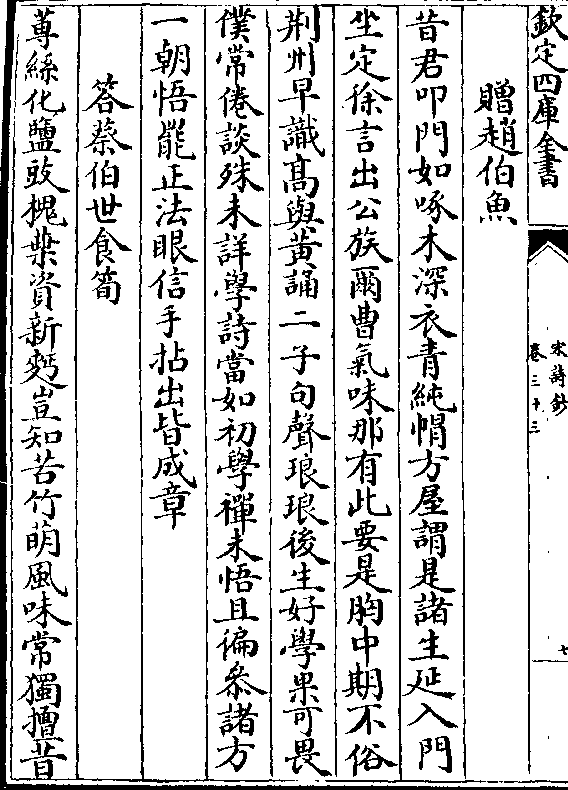 欽定四庫全書
宋詩鈔
卷三十三
七
贈趙伯魚
昔君叩門如啄木深衣青純帽方屋謂是諸生延入門
坐定徐言出公族爾曹氣味那有此要是胸中期不俗
荆州早識髙與黃誦二子句聲琅琅後生好學果可畏
僕常倦談殊未詳學詩當如初學禪未悟且徧叅諸方
一朝悟罷正法眼信手拈出皆成章
答蔡伯世食筍
蓴絲化鹽豉槐葉資新麪豈知苦竹萌風味常獨擅昔